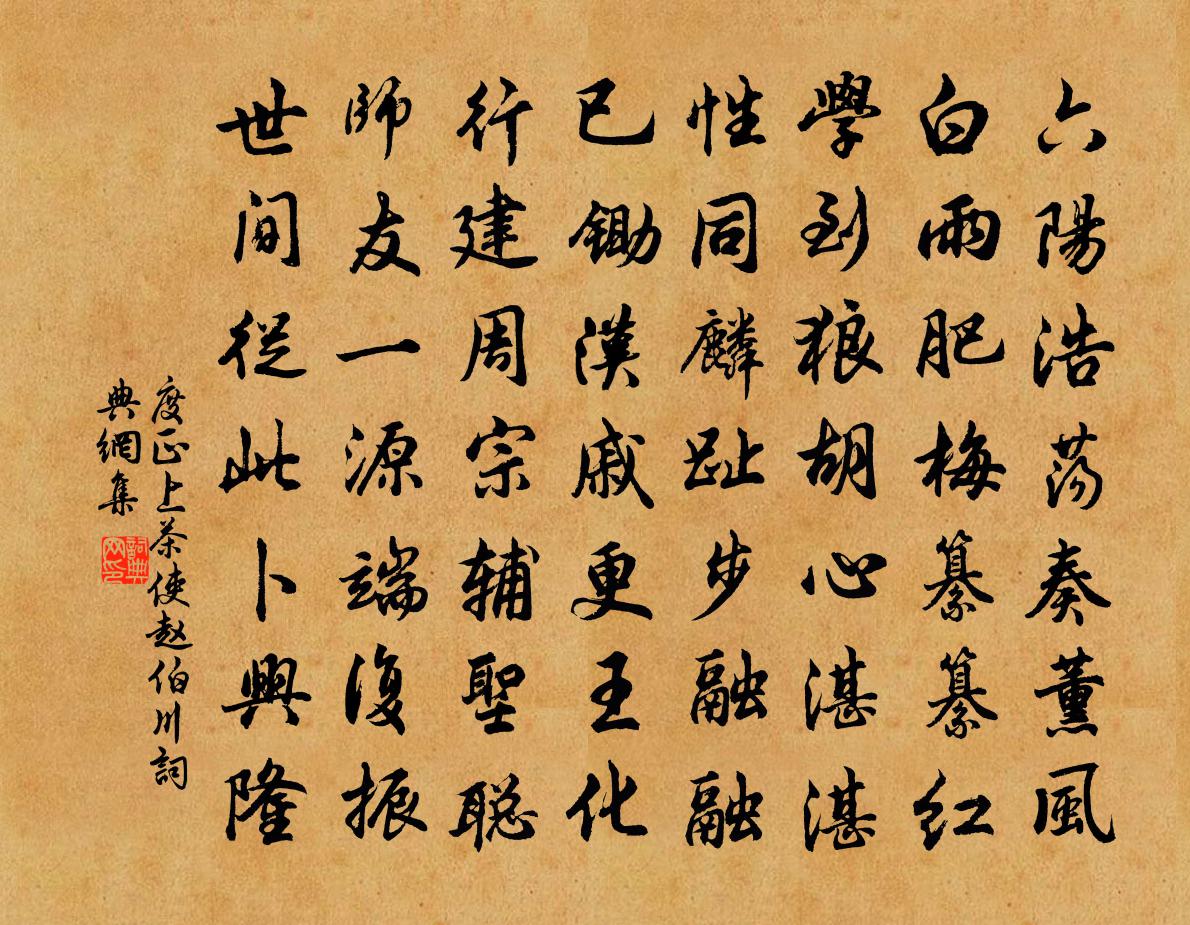 六陽浩蕩奏薰風
白雨肥梅纂纂红
學到狼胡心湛湛
性同麟趾步融融
已鋤漢戚更王化
行建周宗辅聖聪
師友一源端復振
世间從此卜興隆
度正上茶使赵伯川詞
典網集
詞典
网印